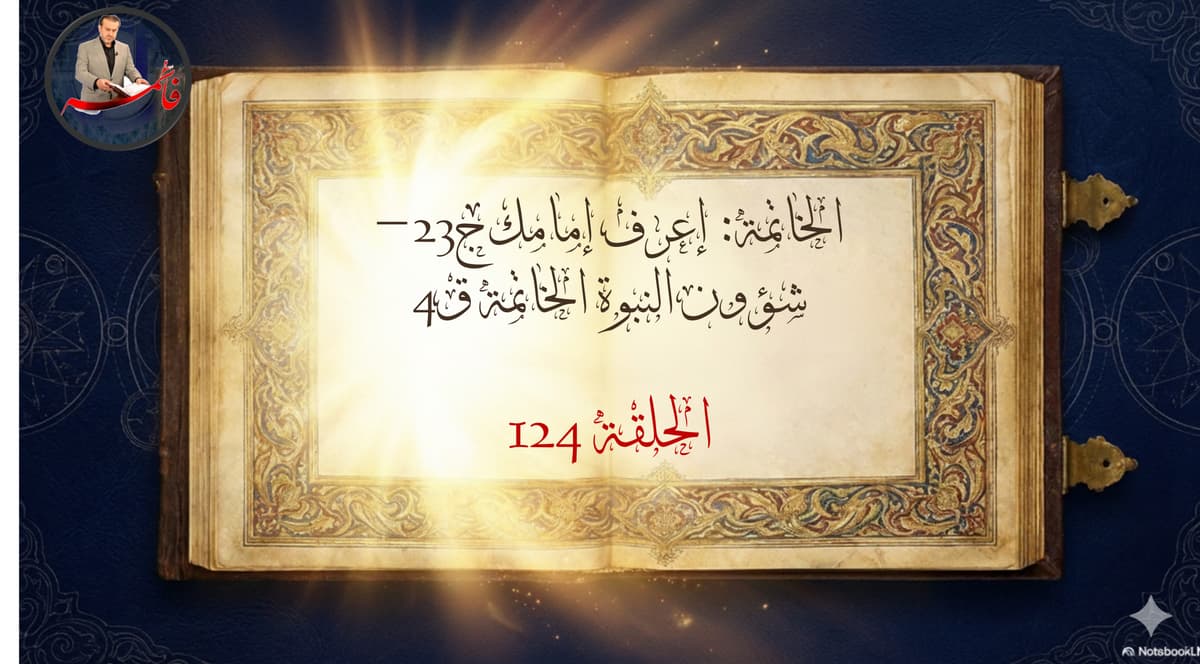 فاطمة
الخاتمة: إعرف إمامك ج23 –
شؤون النبوة الخاتمة ق4
الحلقة 124
NotsbookLM